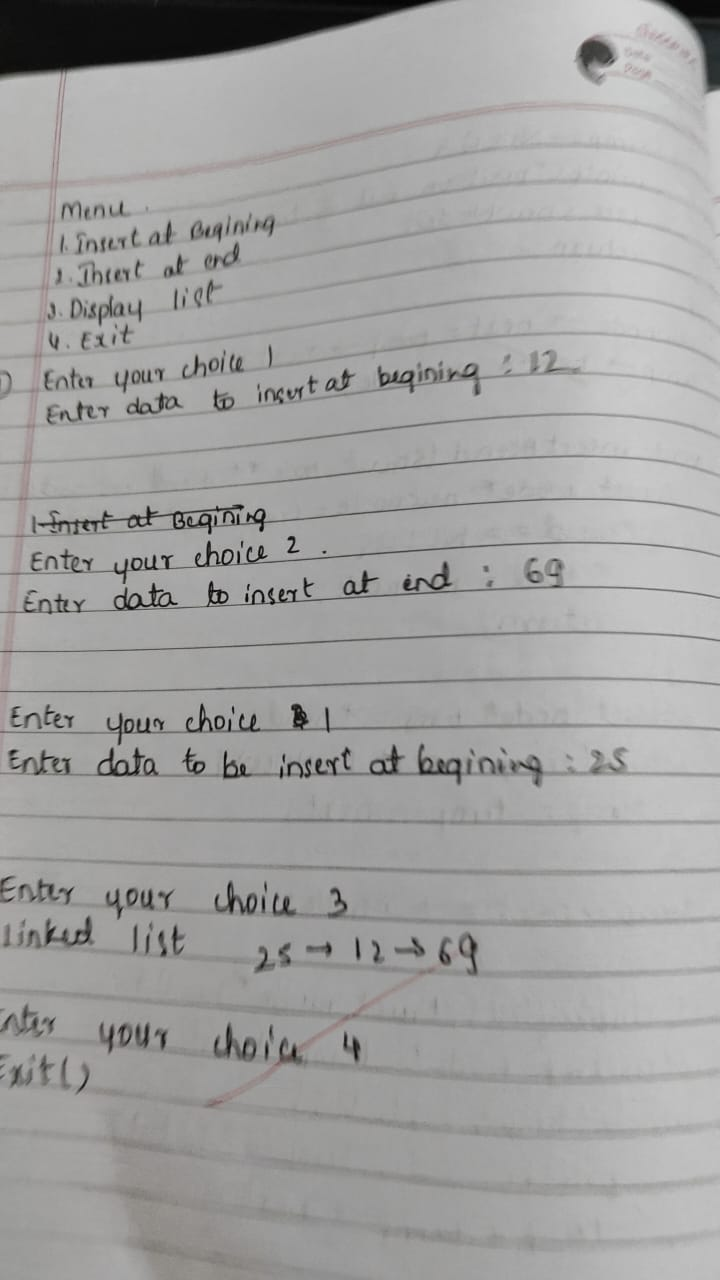 Menu.
1. Insert at Begining
2. Insert at end
3. Display list
4. Exit
Enter your choice 1
Enter data to insert at begining : 12
1. Insert at Begining
Enter your choice 2.
Enter data to insert at end : 69
Enter your choice 1
Enter data to be insert at begining : 25
Enter your choice 3
Linked list 25 → 12 → 69
Enter your choice 4
Exit()